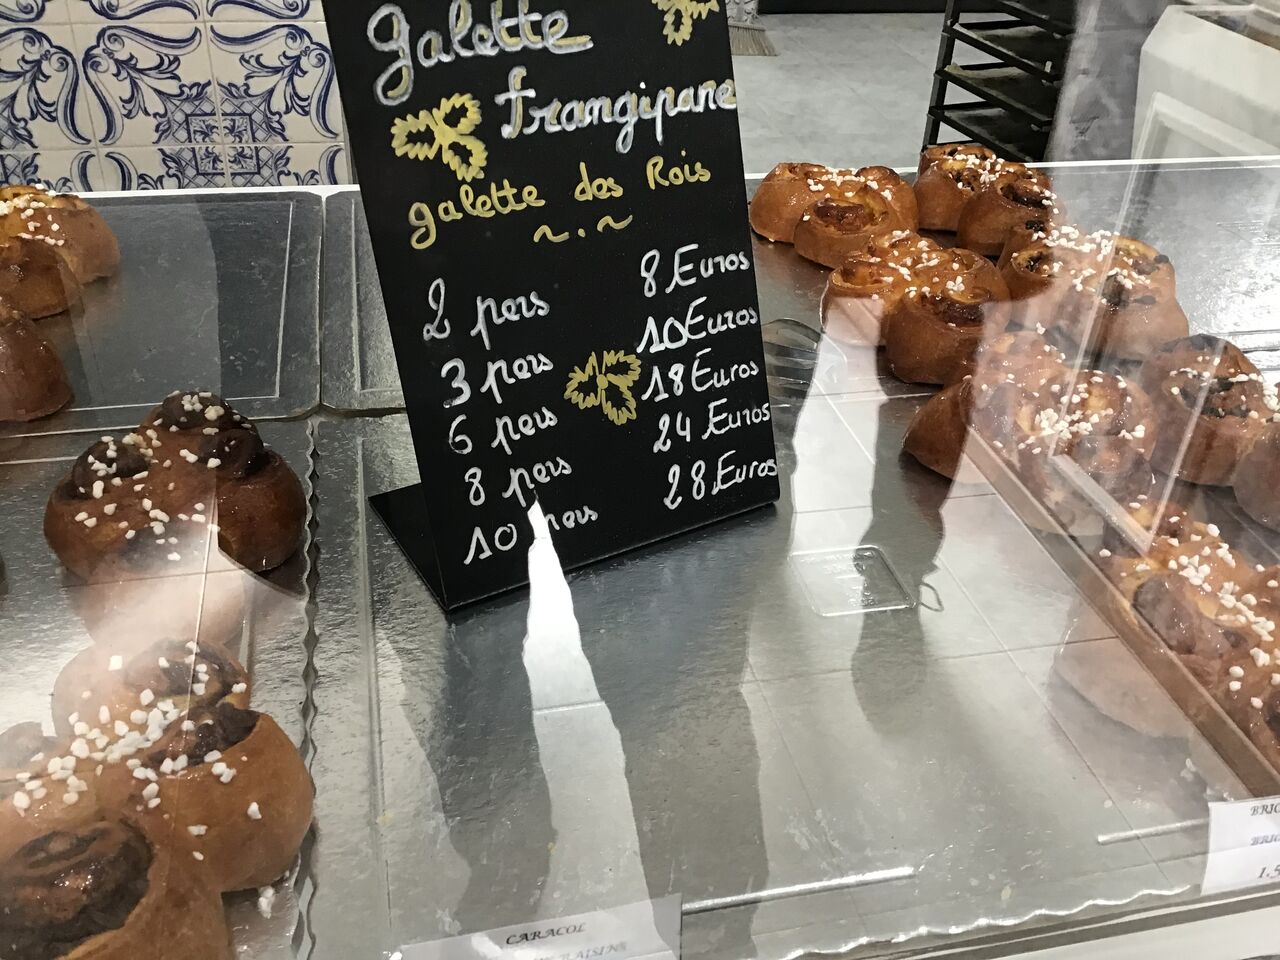 Galette
frangipane
galette des Rois
2 pers 8 Euros
3 pers 10 Euros
6 pers 18 Euros
8 pers 24 Euros
10 pers 28 Euros
CARACOL
RAISINS
BRIO
BRIO
1.5